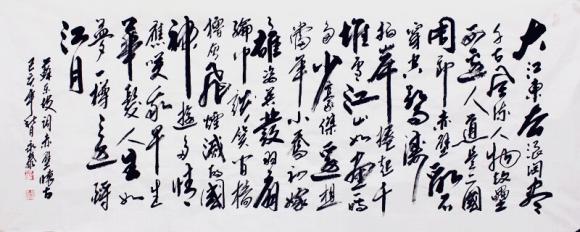 大江東去浪淘盡
千古風流人物故壘
西邊人道是三國
周郎赤壁亂石
穿空驚濤
拍岸捲起千
堆雪江山如畫一時
多少豪傑遙想
當年小喬初嫁
了雄姿英發羽扇
綸巾談笑間檣
櫓灰飛煙滅故國
神遊多情
應笑我早生
華髮人生如
夢一樽還酹
江月
蘇東坡詞赤壁懷古